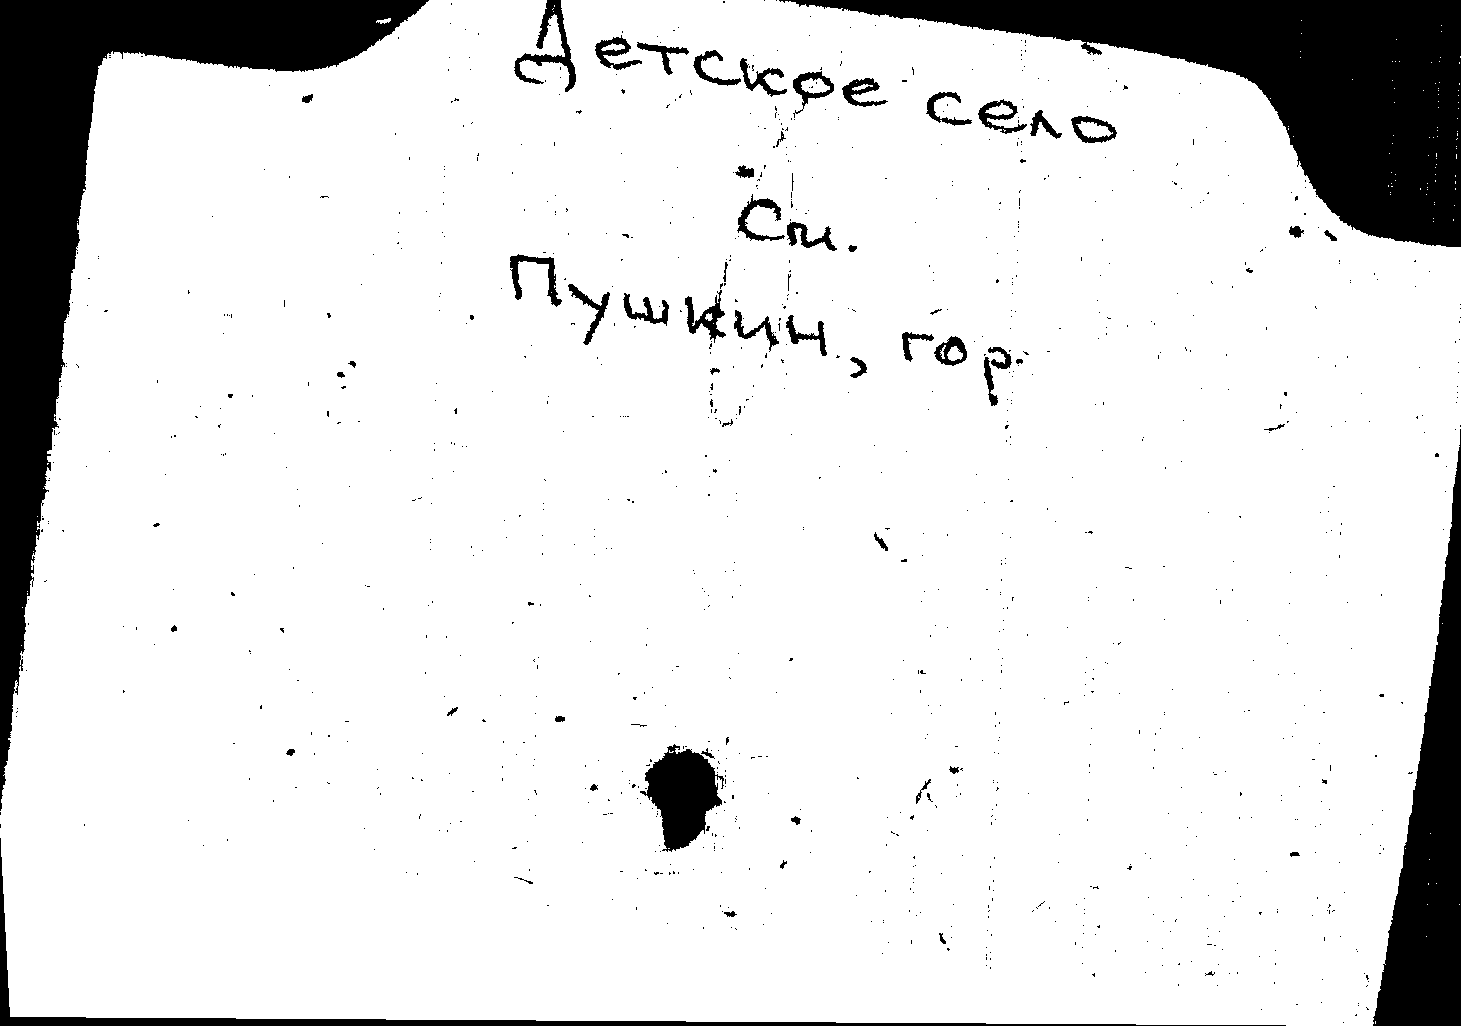 Детское село
См.
Пушкин, гор.